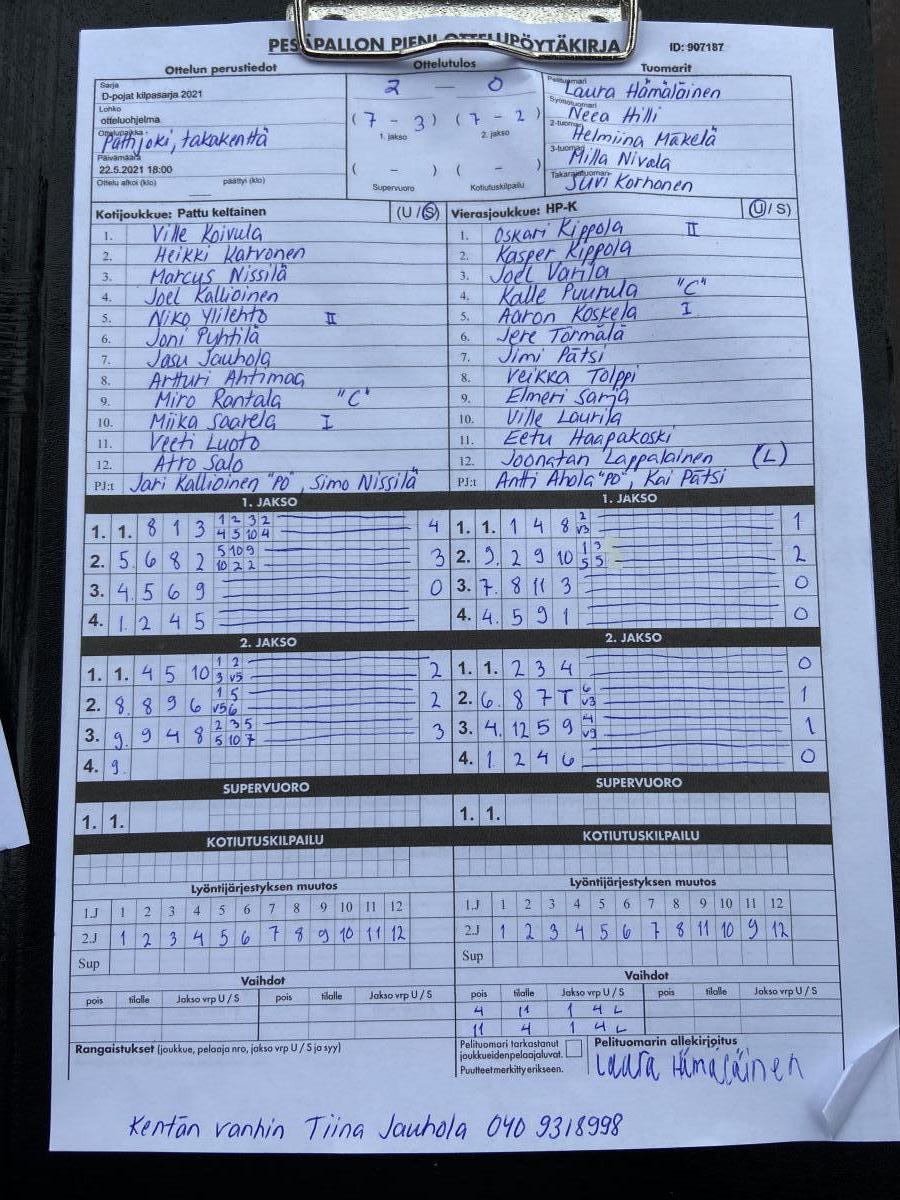 PESÄPALLON PIENI OTTELUPÖYTÄKIRJA
ID: 907187
Ottelun perustiedot
Sarja
D-pojat kilpasarja 2021
Lohko
otteluohjelma
Ottelupaikka
Pattijoki, takakenttä
Päivämäärä
22.5.2021 18:00
Ottelu alkoi (klo) päättyi (klo)
Ottelutulos
2 — 0
(7 - 3) (7 - 2)
1. jakso 2. jakso
( - ) ( - )
Supervuoro Kotiutuskilpailu
Tuomarit
Pelituomari Laura Hämäläinen
Syöttötuomari Neea Hilli
2-tuomari Helmiina Mäkelä
3-tuomari Milla Nivala
Takarajatuomari Suvi Korhonen
Kotijoukkue: Pattu keltainen (U / S)
1. Ville Koivula
2. Heikki Karvonen
3. Marcus Nissilä
4. Joel Kallioinen
5. Niko Ylilehto II
6. Joni Pyhtilä
7. Jasu Jauhola
8. Artturi Ahtimaa
9. Miro Rantala "C"
10. Miika Saarela I
11. Veeti Luoto
12. Atro Salo
PJ:t Jari Kallioinen "PÖ", Simo Nissilä
Vierasjoukkue: HP-K (U / S)
1. Oskari Kippola II
2. Kasper Kippola
3. Joel Varila
4. Kalle Puurula "C"
5. Aaron Koskela I
6. Jere Törmälä
7. Jimi Pätsi
8. Veikka Tolppi
9. Elmeri Sarja
10. Ville Laurila
11. Eetu Haapakoski
12. Joonatan Lappalainen (L)
PJ:t Antti Ahola "PÖ", Kai Pätsi
1. JAKSO
1. 1. 8 1 3 1 2 3 2 4
4 5 10 4
2. 5. 6 8 2 5 10 9 3
10 2 2
3. 4. 5 6 9 0
4. 1. 2 4 5
1. JAKSO
1. 1. 1 4 8 2 1
v3
2. 9. 2 9 10 1 3 2
5 5
3. 7. 8 11 3 0
4. 4. 5 9 1 0
2. JAKSO
1. 1. 4 5 10 1 2 2
3 v5
2. 8. 8 9 6 1 5 2
v5 6
3. 9. 9 4 8 2 3 5 3
5 10 7
4. 9.
2. JAKSO
1. 1. 2 3 4 0
2. 6. 8 7 T 6 1
v3
3. 4. 12 5 9 4 1
v9
4. 1. 2 4 6 0
SUPERVUORO
1. 1.
SUPERVUORO
1. 1.
KOTIUTUSKILPAILU
KOTIUTUSKILPAILU
Lyöntijärjestyksen muutos
1.J 1 2 3 4 5 6 7 8 9 10 11 12
2.J 1 2 3 4 5 6 7 8 9 10 11 12
Sup
Lyöntijärjestyksen muutos
1.J 1 2 3 4 5 6 7 8 9 10 11 12
2.J 1 2 3 4 5 6 7 8 11 10 9 12
Sup
Vaihdot
pois tilalle Jakso vrp U / S pois tilalle Jakso vrp U / S
Vaihdot
pois tilalle Jakso vrp U / S pois tilalle Jakso vrp U / S
4 11 1 4 L
11 4 1 4 L
Rangaistukset (joukkue, pelaaja nro, jakso vrp U / S ja syy)
Pelituomari tarkastanut
joukkueiden pelaajaluvat.
Puutteet merkitty erikseen.
Pelituomarin allekirjoitus
Laura Hämäläinen
Kentän vanhin Tiina Jauhola 040 9318998